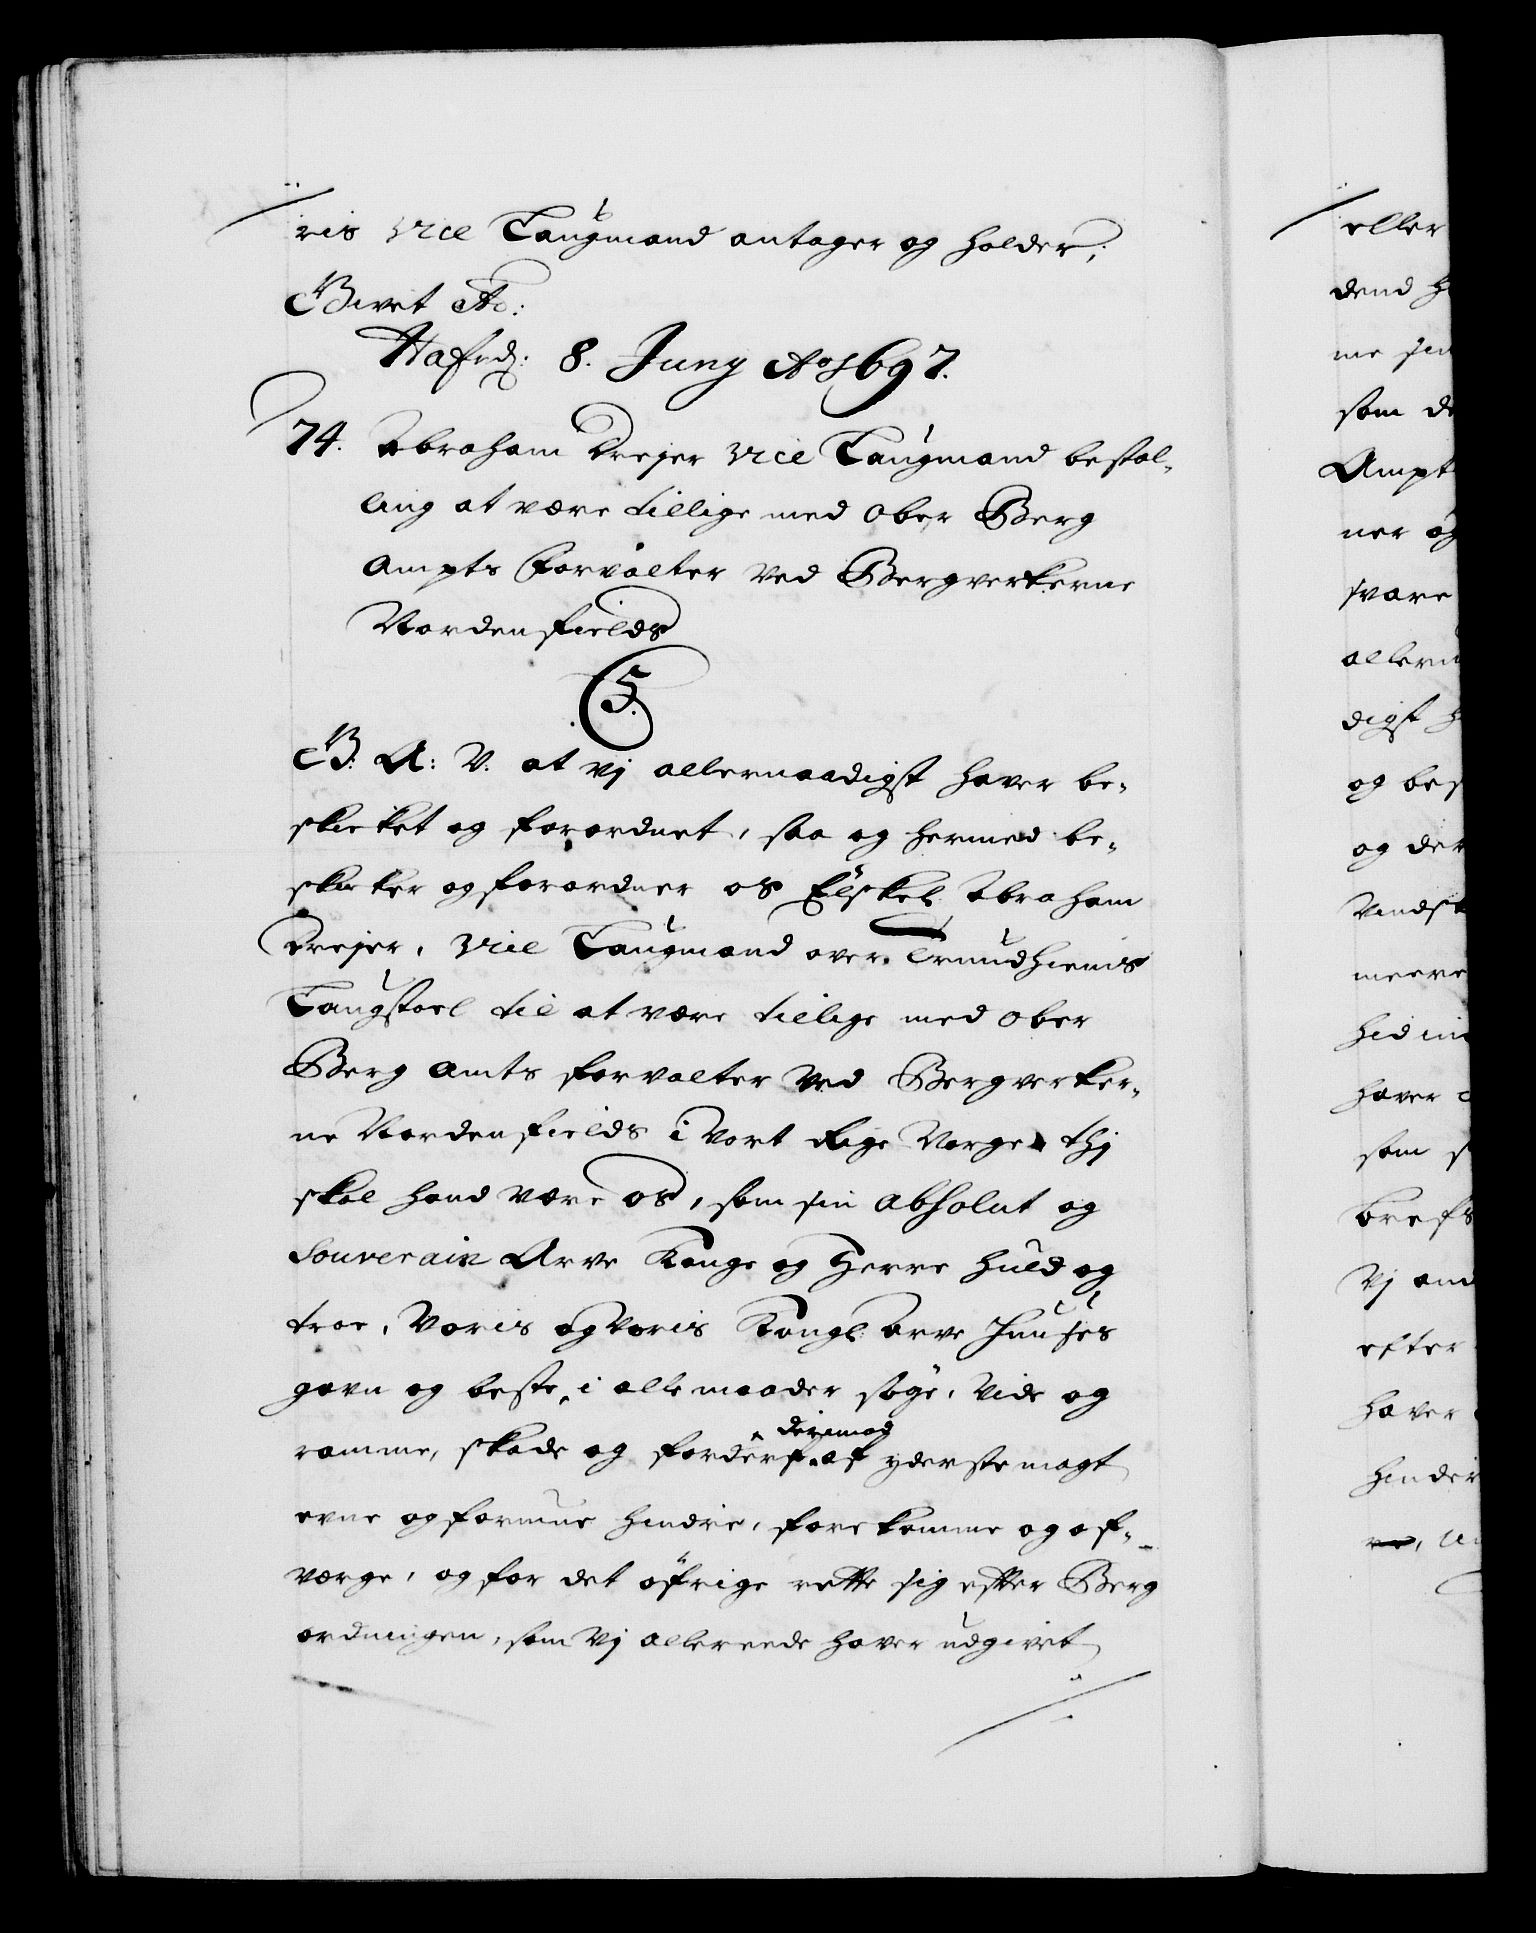 ris Vice Laugmand antager og holder,
Givet Ao:
Hafniæ: 8. Juny Ao 1697.
74. Abraham Drejer Vice Laugmand bestal-
ling at være tillige med Ober Berg
Ampts Forvalter ved Bergverkerne
Nordenfields
C5.
G: A: V: at vj allernaadigst haver be-
skicket og forordnet, saa og hermed be-
skicker og forordner os Elskel: Abraham
Drejer, Vice Laugmand over Trundhiems
Laugstoel til at være tillige med Ober
Berg Amts Forvalter ved Bergverker-
ne Nordenfields i Vort Rige Norge thj
skal hand være os, som sin absolut og
Souverain Arve Konge og Herre huld og
troe, Voris og Voris Kongl: Arve Huuses
gavn og beste, i alle maader søge, vide og
ramme, skade og forderf derimod af yderste magt
evne og formue hindre, forekomme og af-
værge, og for det øfrige rette sig efter Berg
ordningen, som Vj allereede haver udgivet
eller
dend
som
Ampt
ner og
svare
digst
og
og der
meere
haver
som
Vj
efter
haver